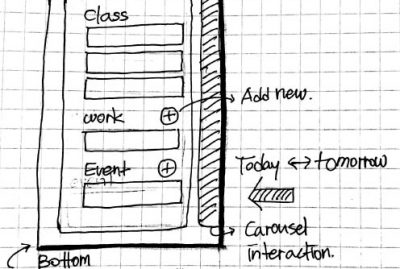 Class
work
Add new.
Event
Today ↔ tomorrow
Carousel
interaction.
Bottom